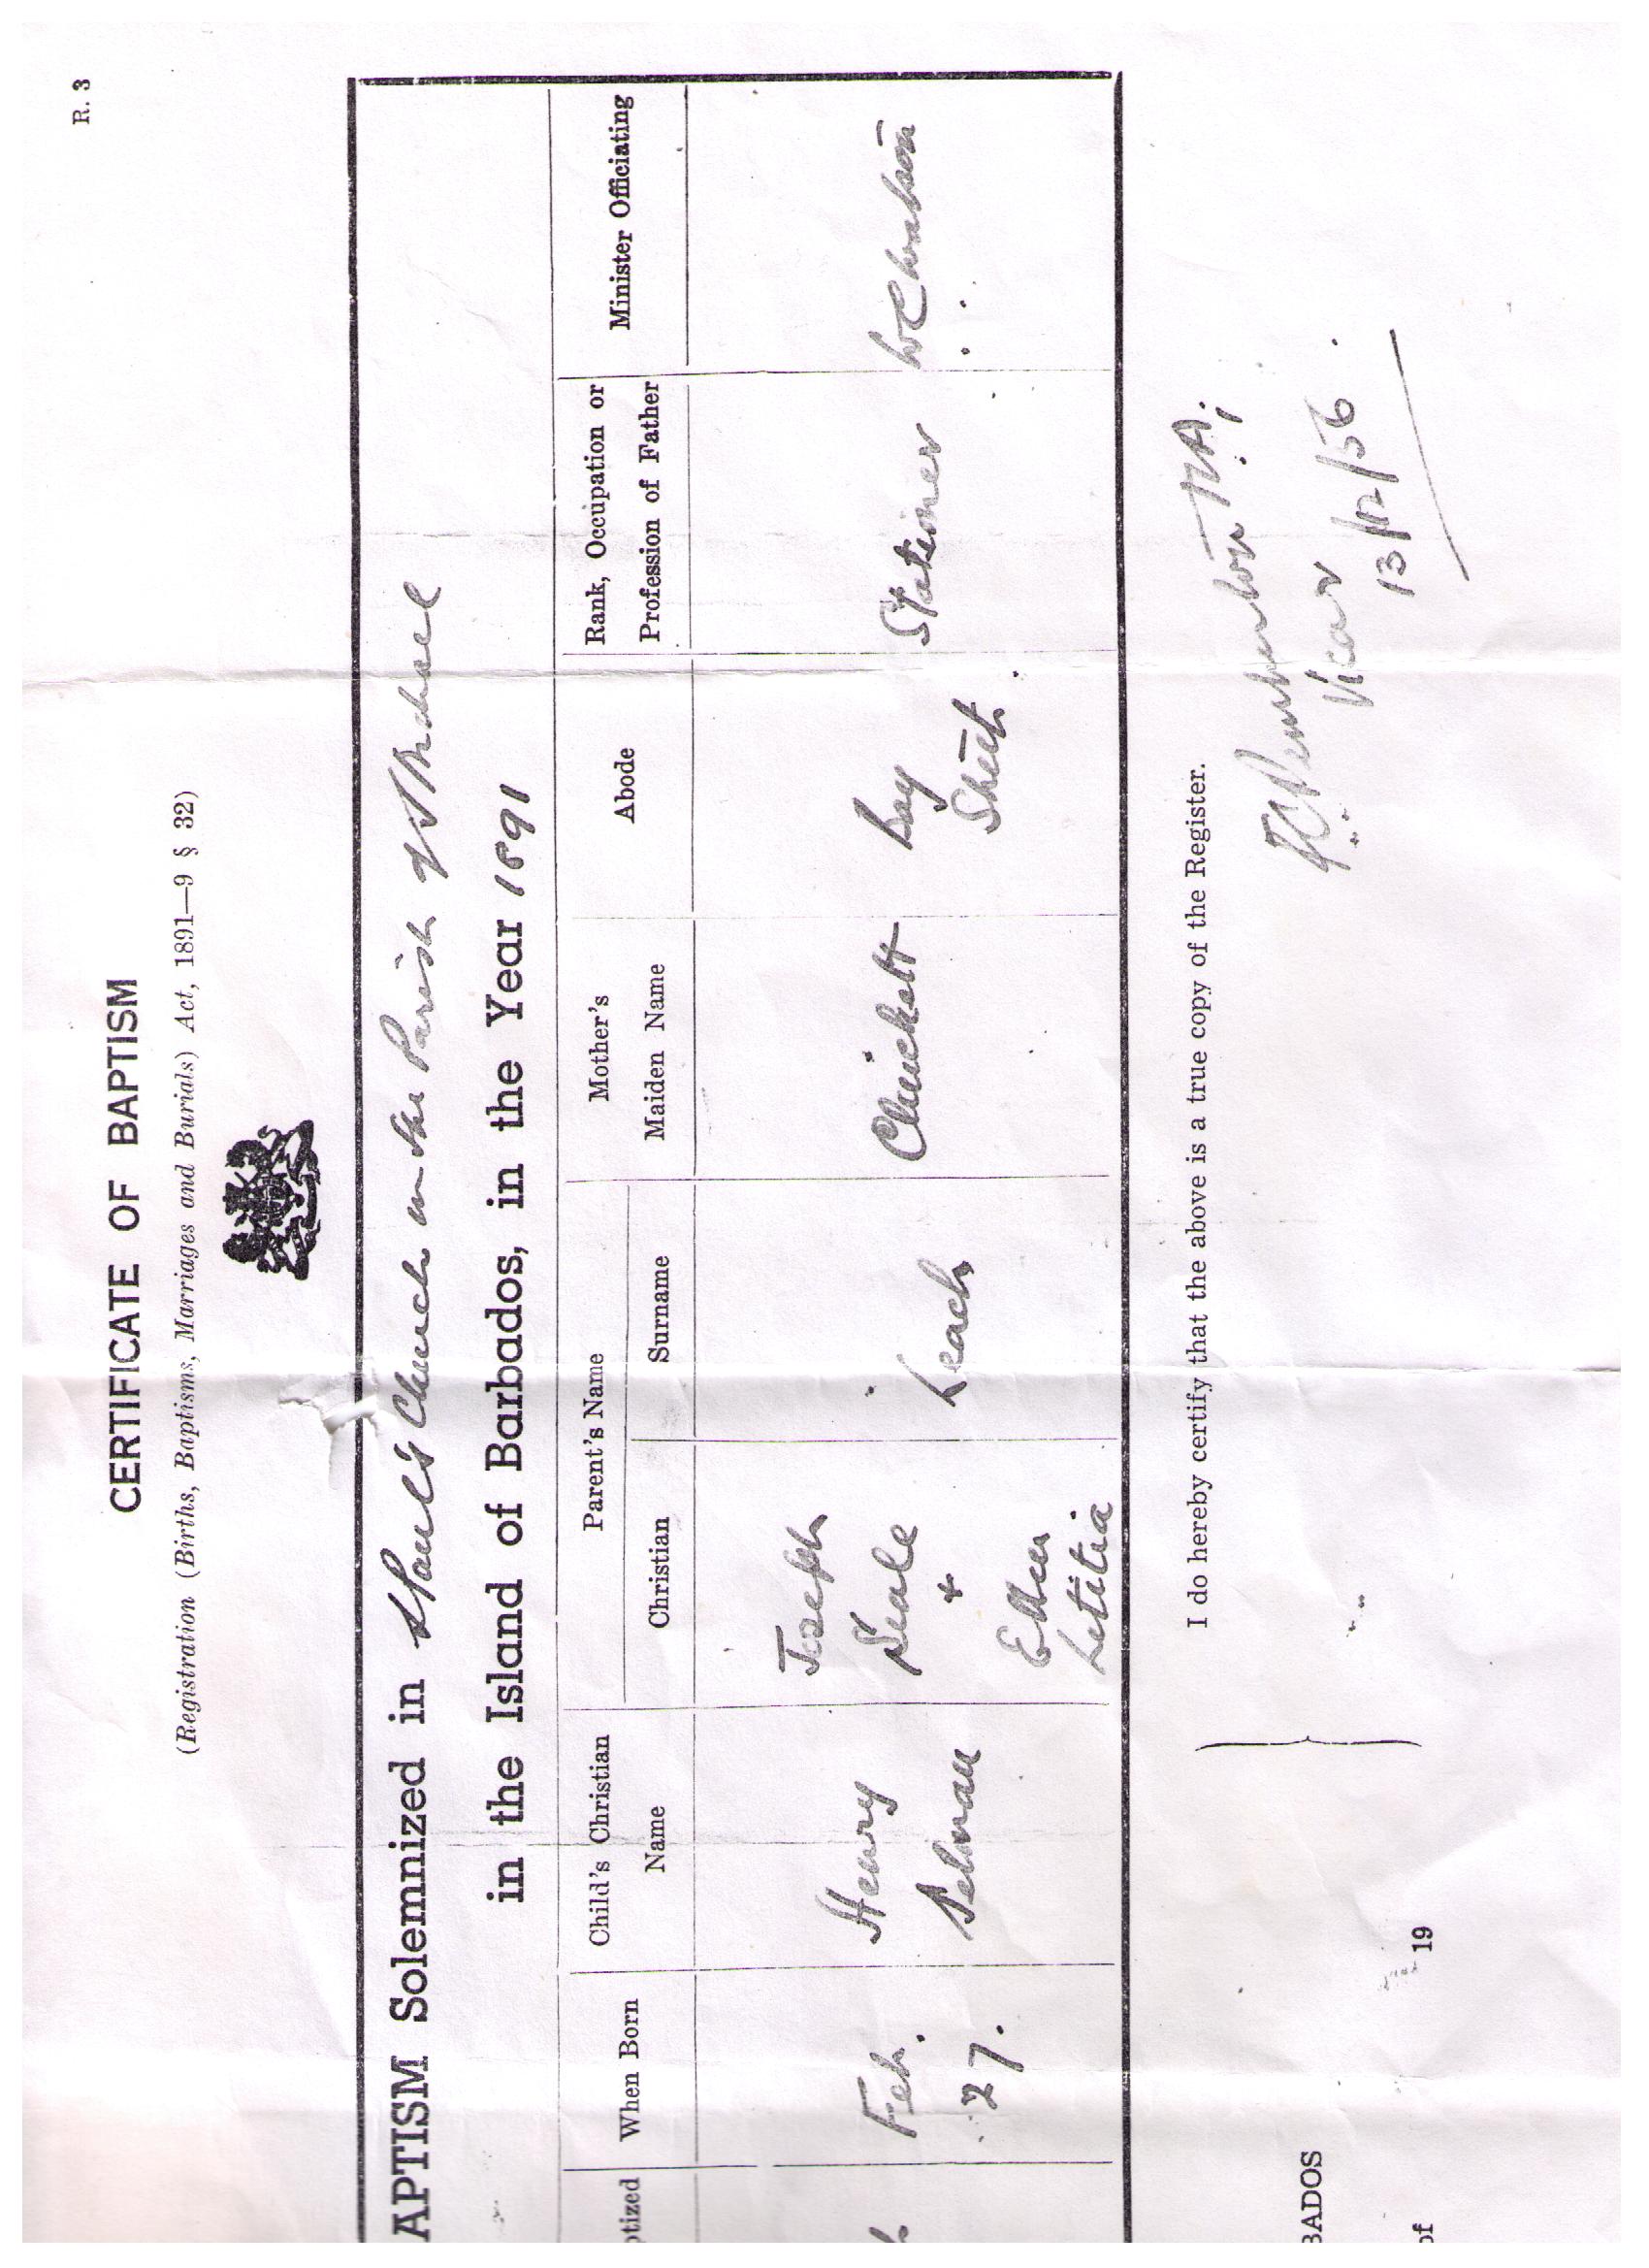 R. 3
CERTIFICATE OF BAPTISM
(Registration (Births, Baptisms, Marriages and Burials) Act, 1891—9 § 32)
APTISM Solemnized in St Paul's Church in the Parish of St Michael
in the Island of Barbados, in the Year 1891
ptized
When Born
Child's Christian
Name
Parent's Name
Christian
Surname
Mother's
Maiden Name
Abode
Rank, Occupation or
Profession of Father
Minister Officiating
Feb.
27.
Henry
Selman
Joseph
Seale
+
Ellen
Letitia
Leach
Chuickett
Bay
Street.
Stationer
I do hereby certify that the above is a true copy of the Register.
Vicar
13/12/56
BADOS
of
19